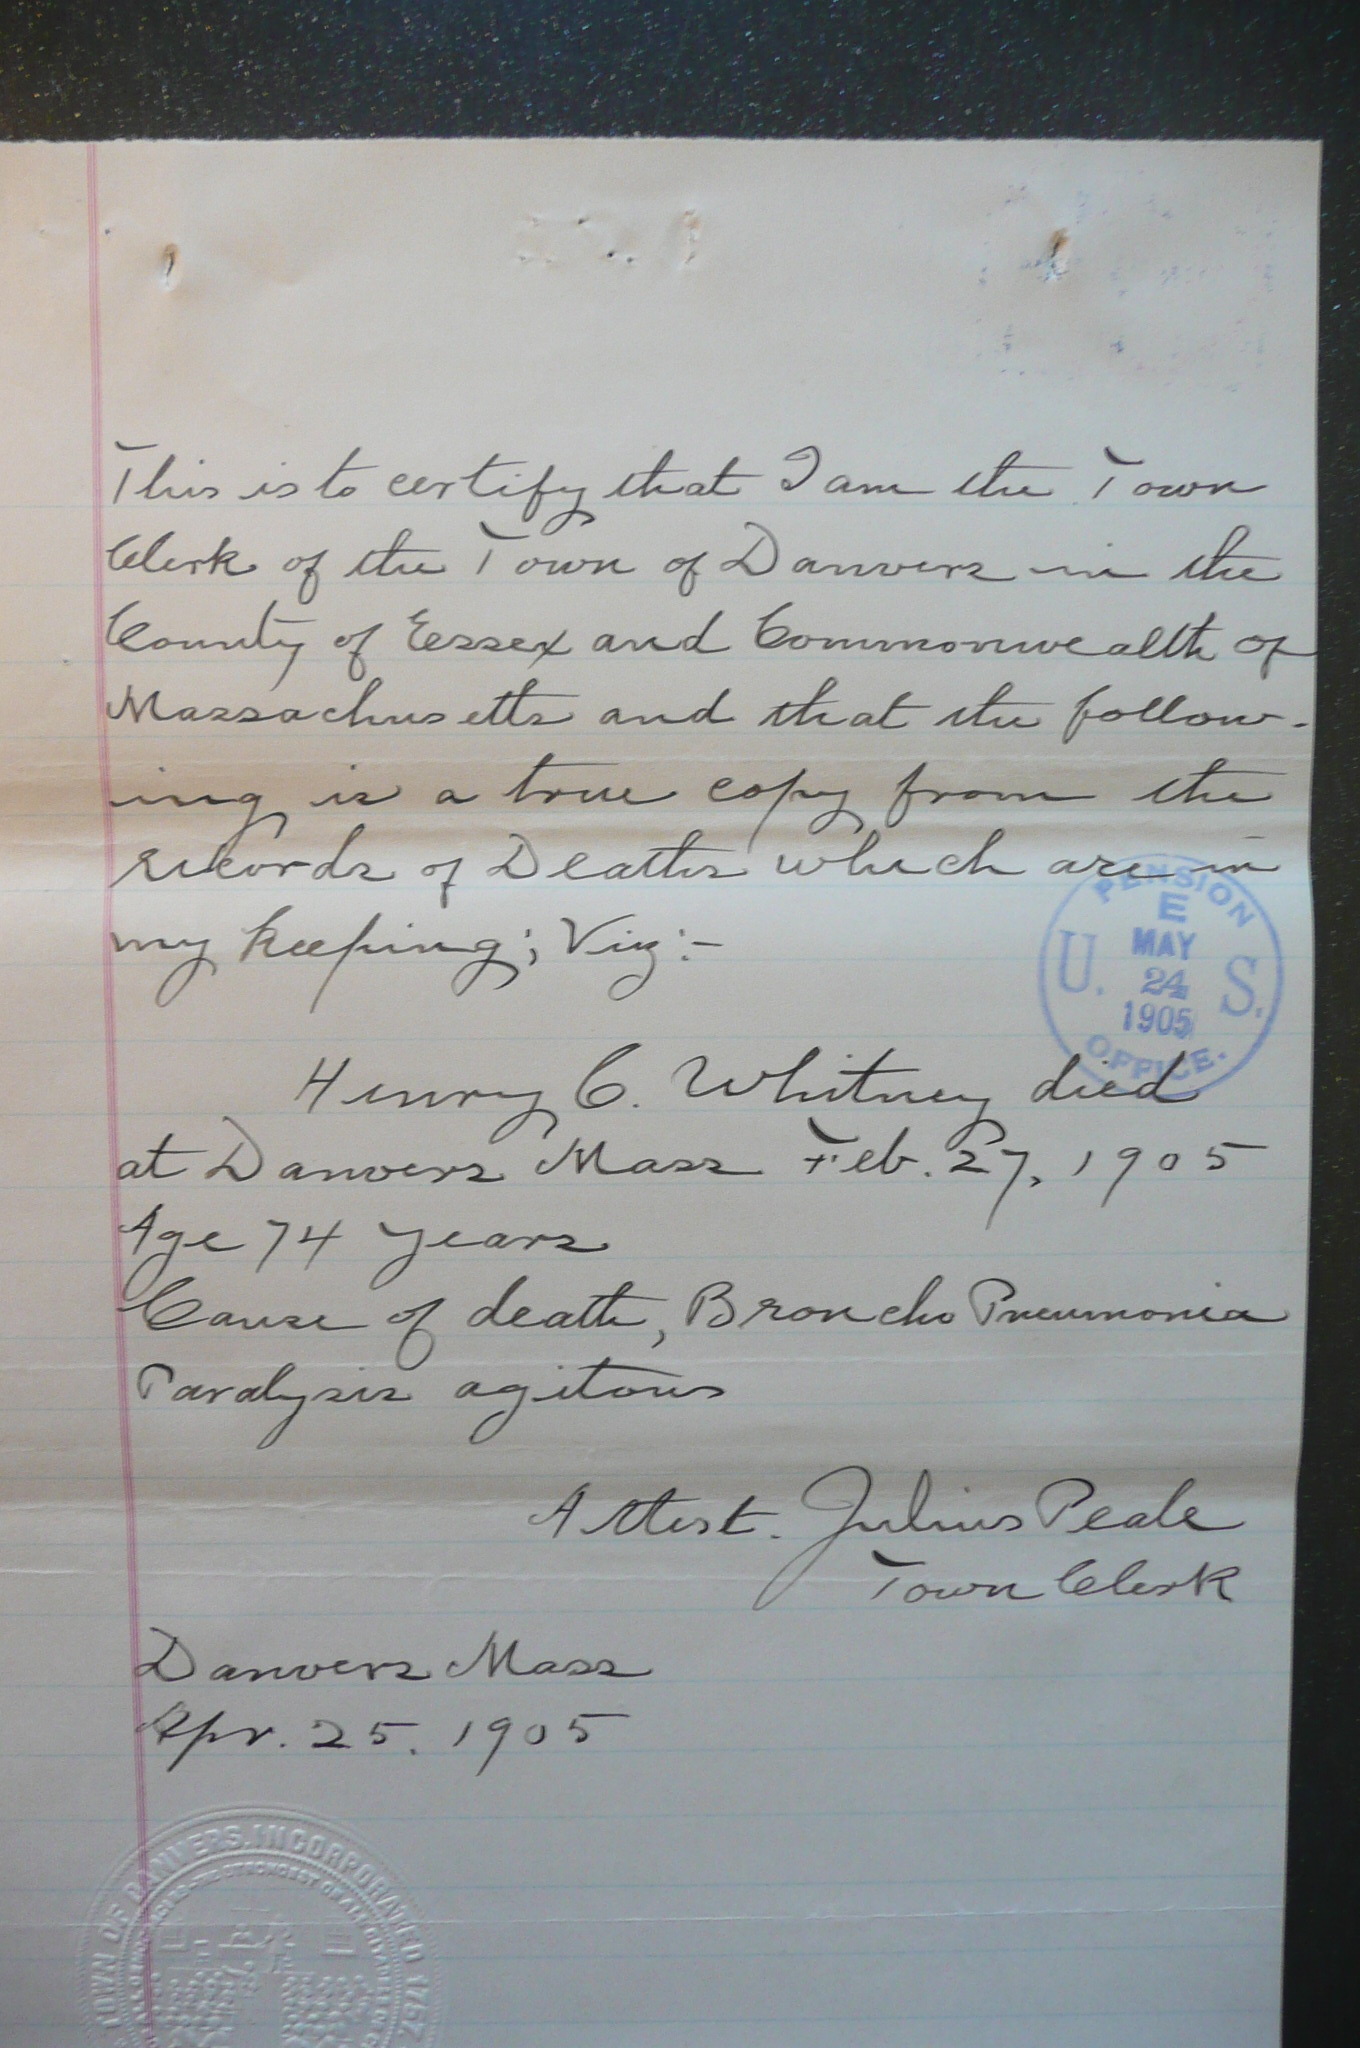 This is to certify that I am the Town
Clerk of the Town of Danvers in the
County of Essex and Commonwealth of
Massachusetts and that the follow-
ing is a true copy from the
records of Deaths which are in
my keeping; Viz:-
PENSION
E
MAY
U. 24 S.
1905
OFFICE.
Henry C. Whitney died
at Danvers Mass Feb. 27, 1905
Age 74 years
Cause of death, Broncho Pneumonia
Paralysis agitous
Attest. Julius Peale
Town Clerk
Danvers Mass
Apr. 25. 1905
TOWN OF DANVERS. INCORPORATED 1757.
THE STRONGEST OF ALL